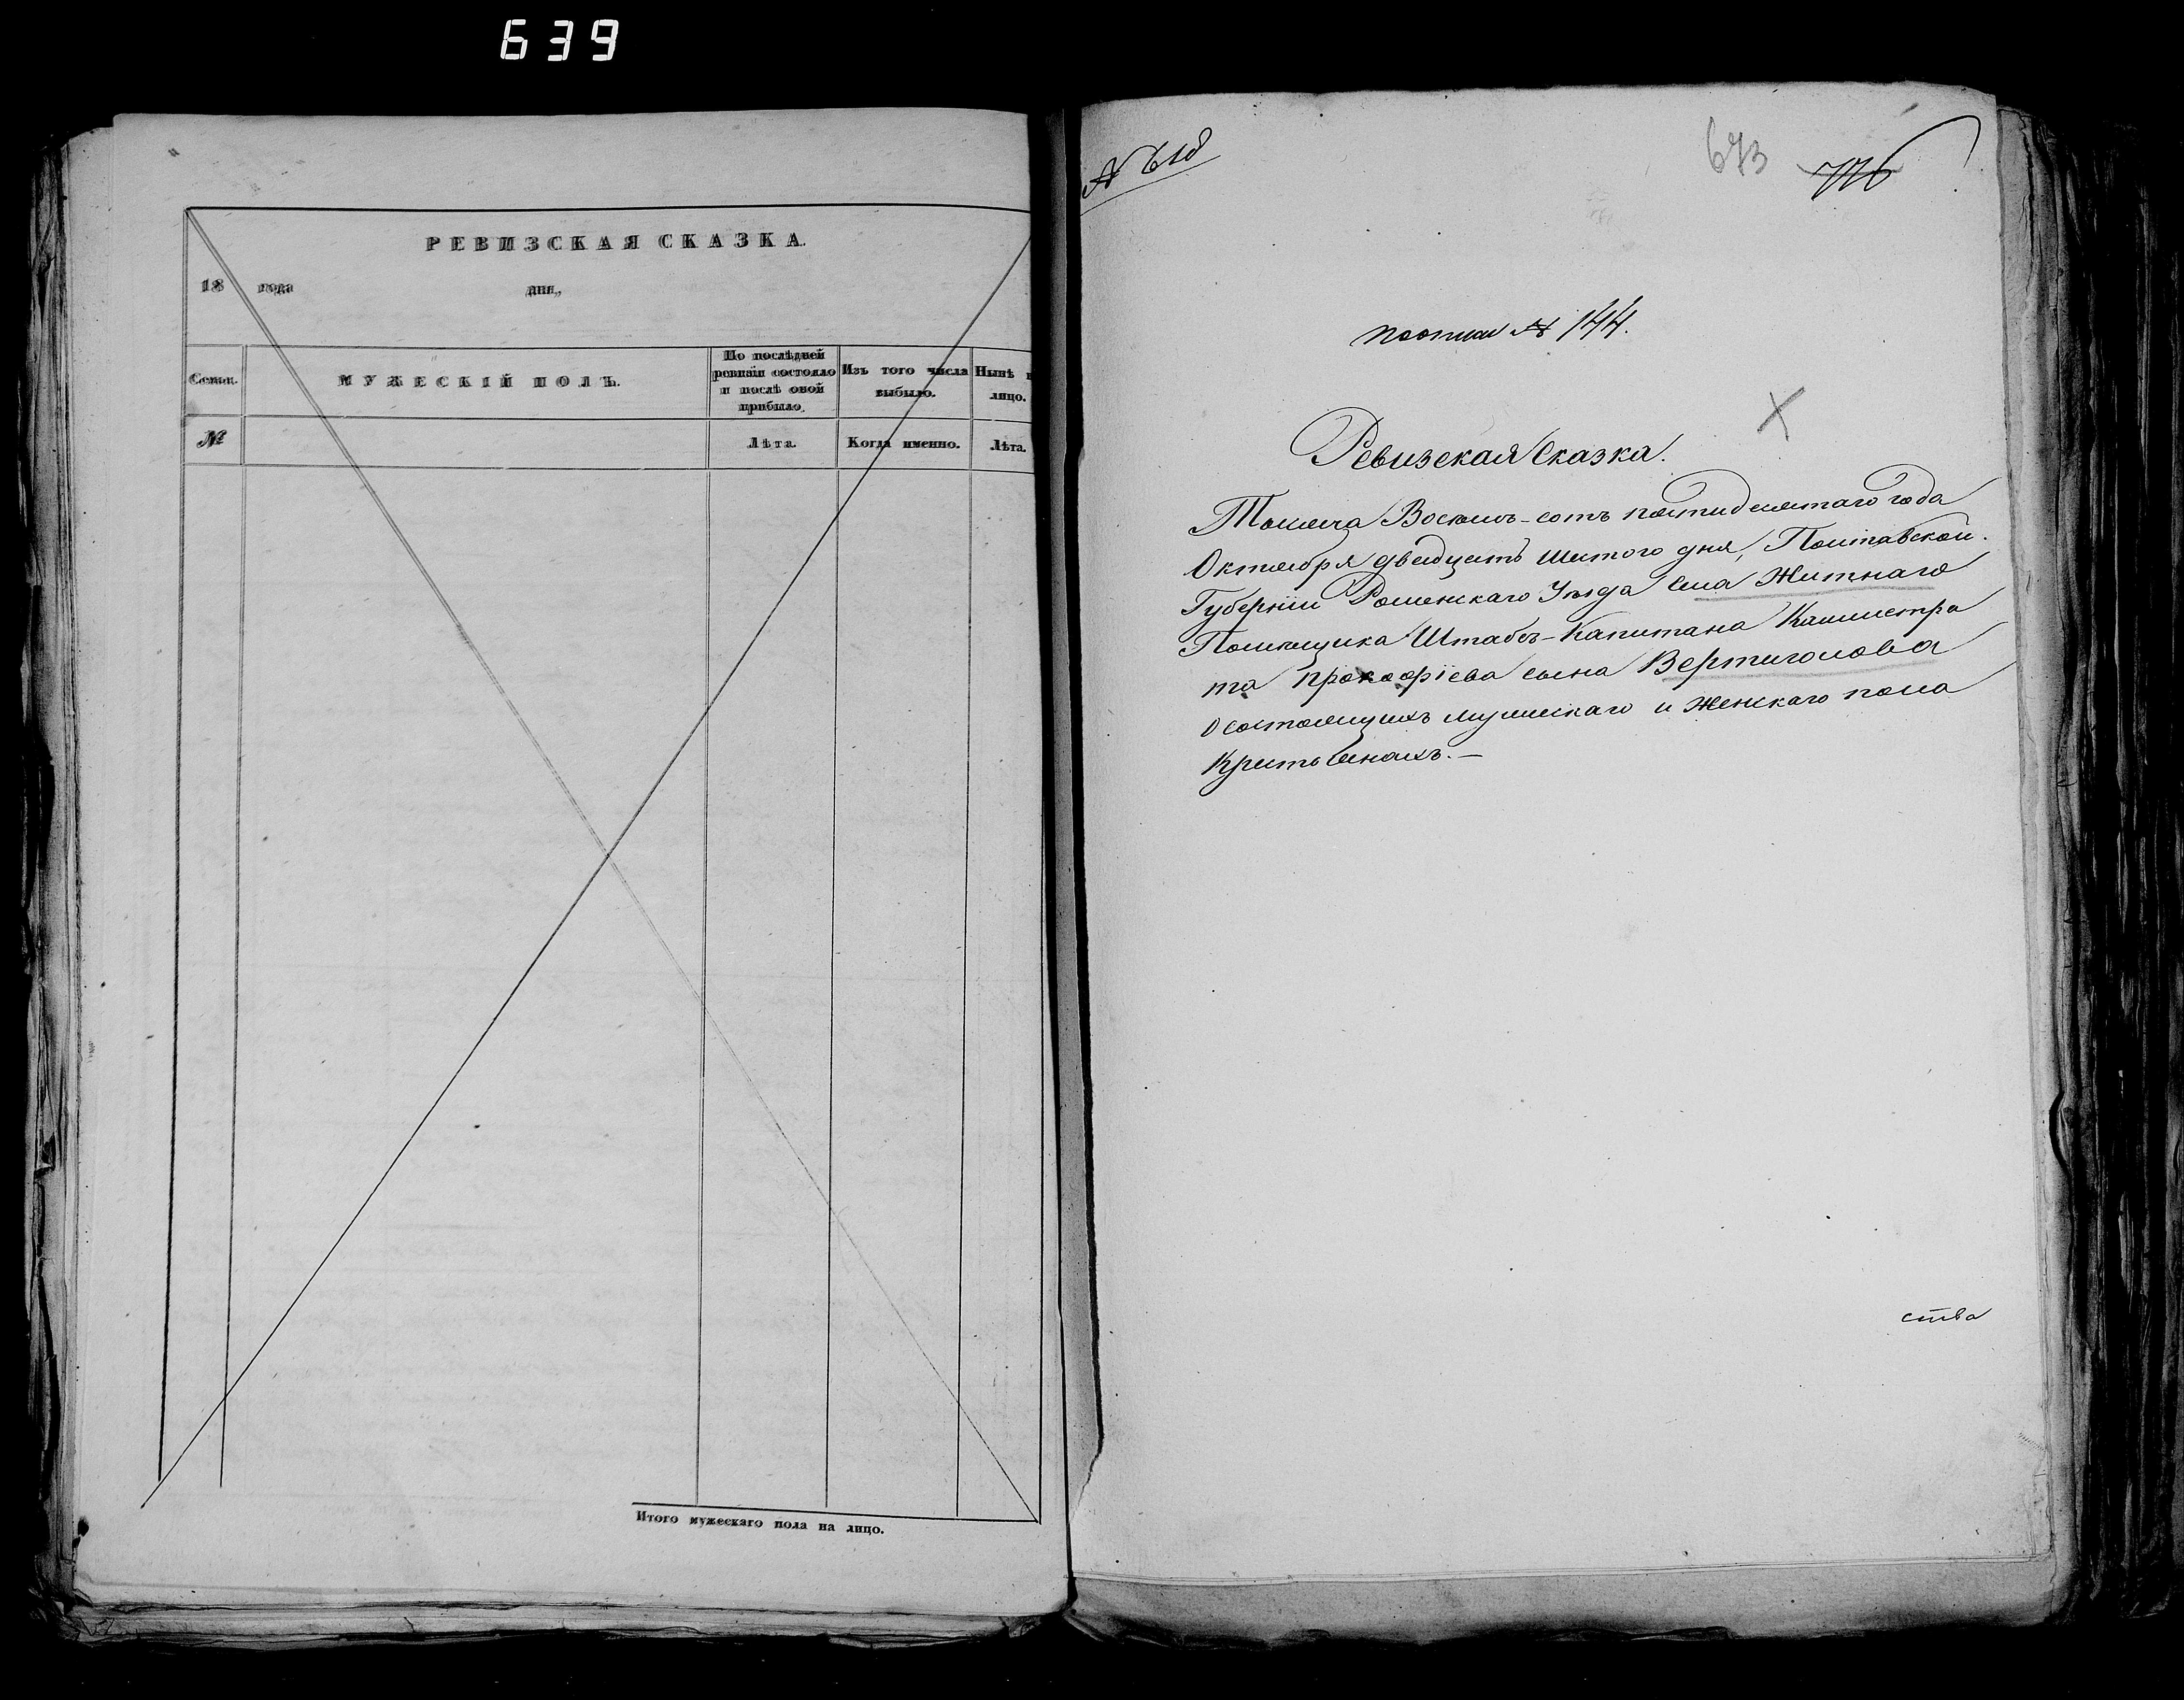 639
РЕВИЗСКАЯ СКАЗКА.
18 года дня,
Семьи.
МУЖЕСКІЙ ПОЛЪ.
По послѣдней
ревизіи состояло
и послѣ оной
прибыло.
Изъ того числа
выбыло.
Нынѣ
лицо.
№
Лѣта.
Когда именно.
Лѣта.
Итого мужескаго пола на лицо.
№ 618
673
776
№ 144.
Ревизская Сказка.
Тысяча Восемь-сотъ пятидесятаго года
Октября двадцать шестого дня, Полтавской
Губерніи Роменскаго Уѣзда Села Житнаго
Помѣщика Штабсъ-Капитана Калистра
та Прокофіева сына Вертиголова
О состоящихъ мужескаго и женскаго пола
Крестьянахъ.—
ства